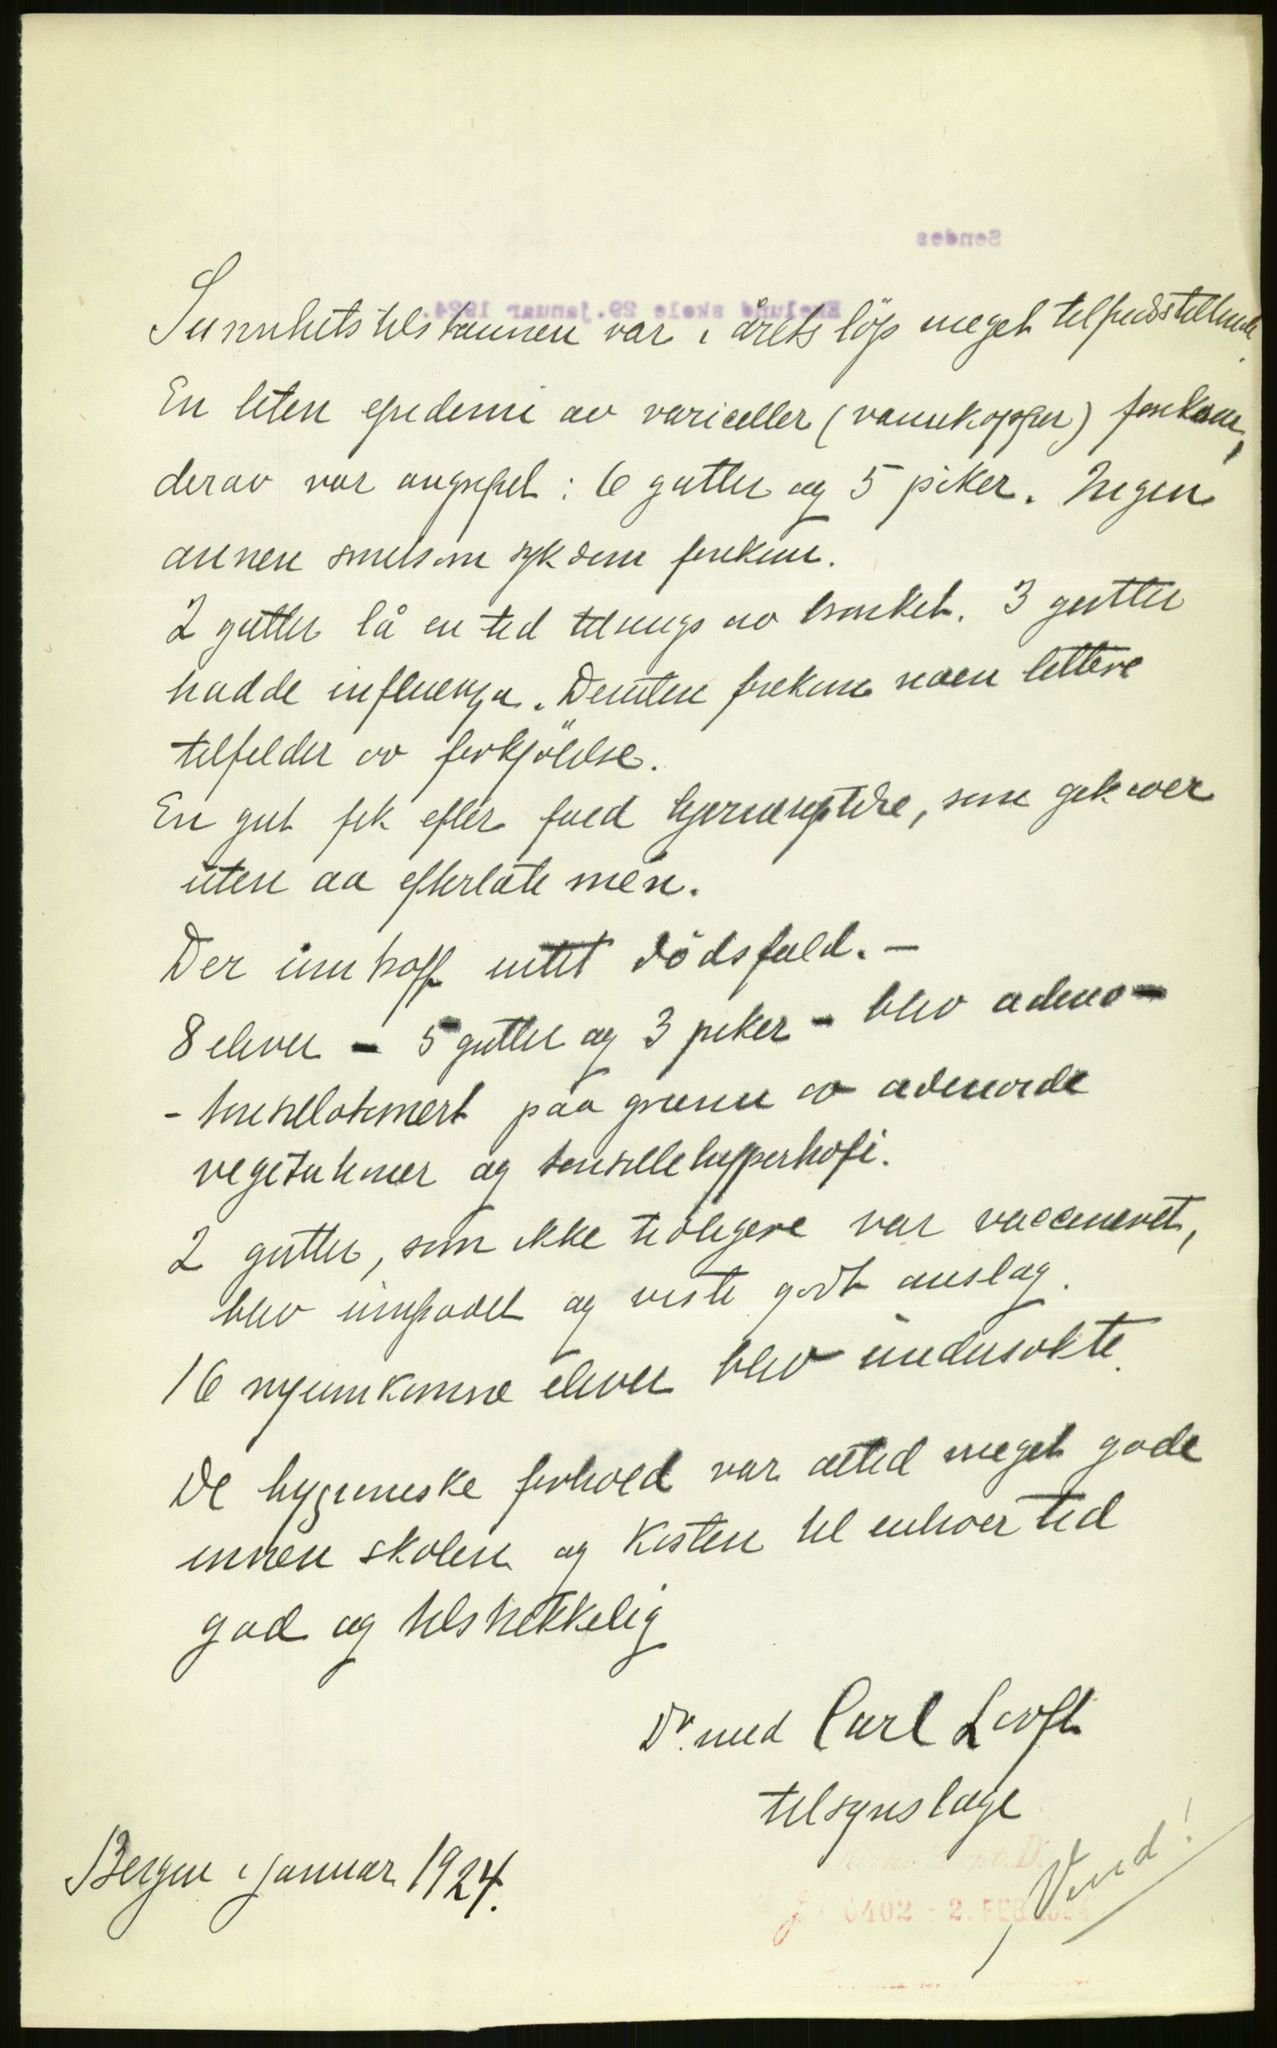 Sendes
Ekelund skole 29. januar 1924.
Sunnhetstilstannen var i årets löp meget tilfredsstillende.
En liten epidemi av variceller (vannkopper) forekom,
derav var angrepet: 6 gutter og 5 piker. Ingen
annen smitsom sykdom forekom.
2 gutter lå en tid tilsengs av bronkit. 3 gutter
hadde influenza. Desuten forekom noen lettere
tilfelder av forkjölelse.
En gut fik efter fald hjernerystelse, som gik over
uten aa efterlate mén.
Der inntraff intet dödsfald. —
8 elever — 5 gutter og 3 piker — blev adeno-
- tonsillotomert paa grunn av adenoide
vegetationer og tonsillehypertrofi.
2 gutter, som ikke tidligere var vaccineret,
blev impodet og viste godt anslag.
16 nyinnkomne elever blev undersökte.
De hygieniske forhold var altid meget gode
innen skolen og kosten til enhver tid
god og tilstrekkelig
Dr. med Carl Looft
tilsynslæge
Bergen i januar 1924.
Vend!
0402 - 2. FEB. 1924